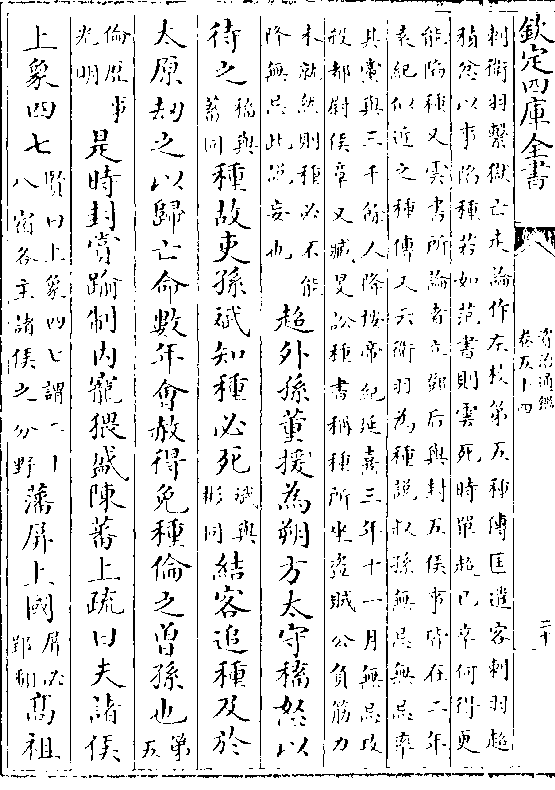 欽定四庫全書
資治通鑑
卷五十四
二十
刺衛羽繫獄亡走論作左校第五種傳匡遣客刺羽超
積忿以事陷種若如范書則雲死時單超已卒何得更
能陷種又雲書所論者立鄧后與封五侯事皆在二年
袁紀似近之種傳又云衛羽為種說叔孫無忌無忌率
其黨與三千餘人降按帝紀延熹三年十一月無忌攻
殺都尉侯章又臧旻訟種書稱種所坐盜賊公負筋力
未就然則種必不能
降無忌此說妄也
超外孫董援為朔方太守稸怒以
待之稸與蓄同種故吏孫斌知種必死斌與彬同結客追種及於
太原劫之以歸亡命數年會赦得免種倫之曾孫也第五
倫歷事光明是時封賞踰制内寵猥盛陳蕃上疏曰夫諸侯
上象四七賢曰上象四七謂二十八宿各主諸侯之分野藩屏上國屏必郢翻高祖